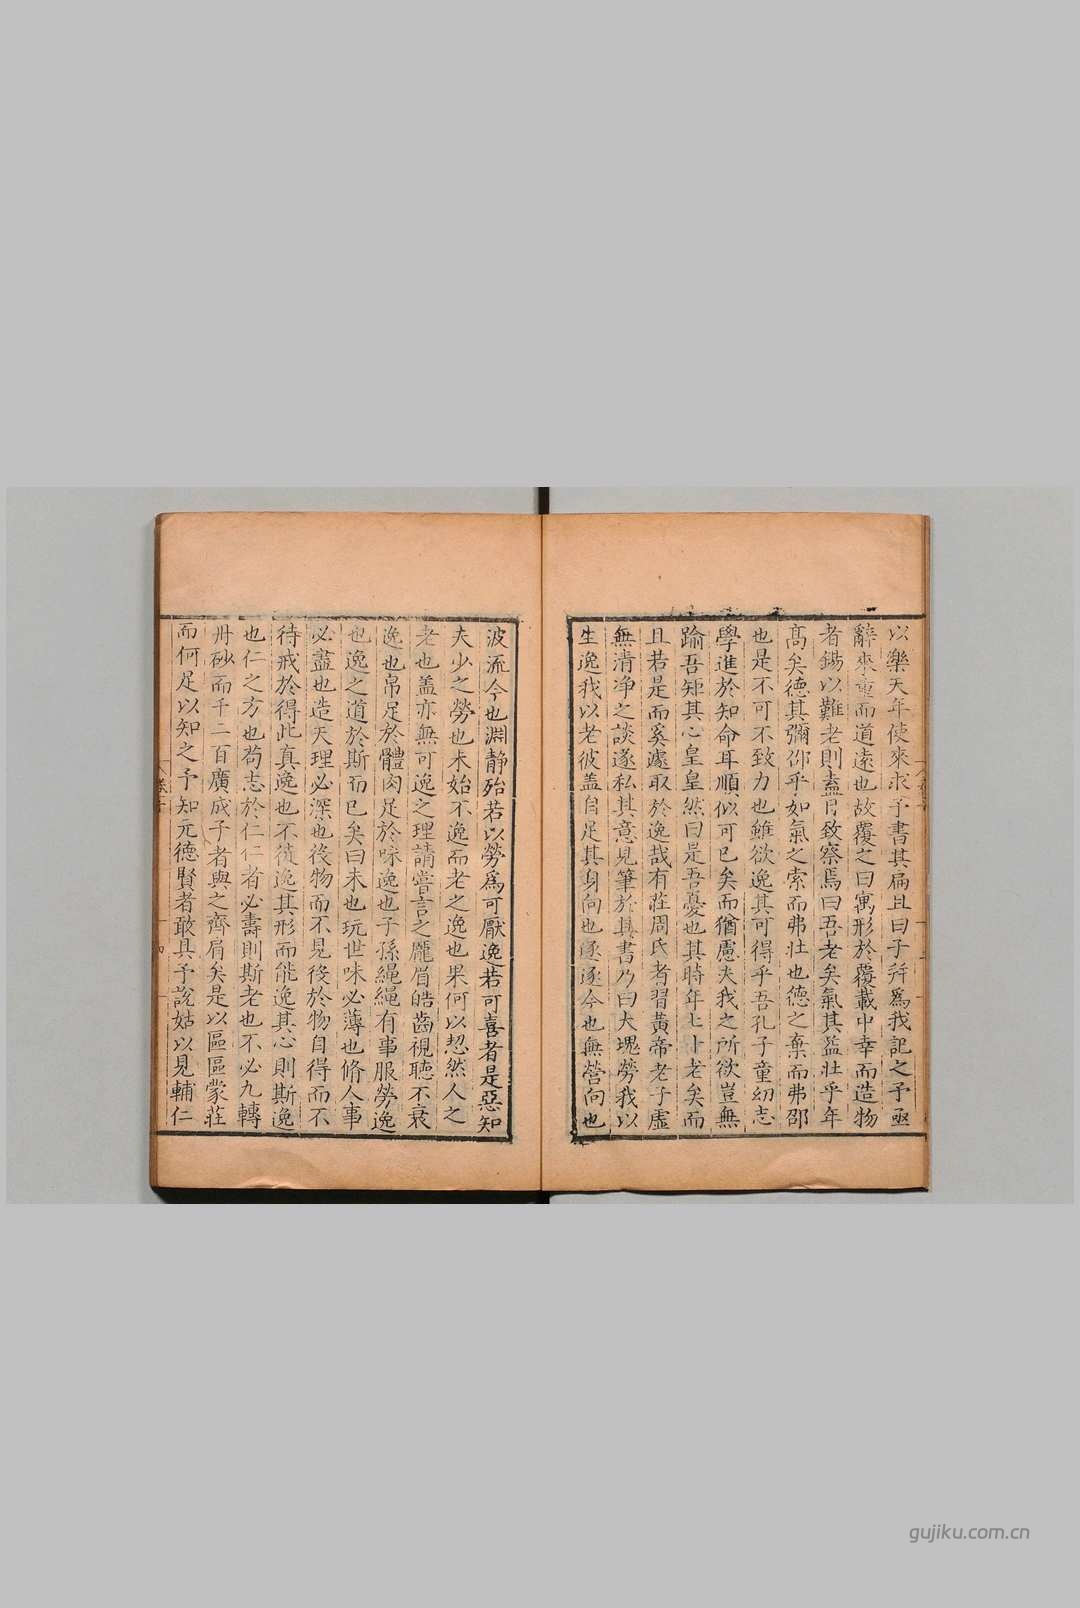 以樂天年使來求予書其扁且曰子幷爲我記之予亟
辭來重而道遠也故覆之曰寓形於覆載中幸而造物
者錫以難老則盍日致察焉曰吾老矣氣其益壯乎年
髙矣德其彌邵乎如氣之索而弗壯也德之棄而弗邵
也是不可不致力也雖欲逸其可得乎吾孔子童幼志
學進於知命耳順似可已矣而猶慮夫我之所欲豈無
踰吾矩其心皇皇然曰是吾憂也其時年七十老矣而
且若是而奚遽取於逸哉有莊周氏者習黃帝老子虛
無清净之談遂私其意見筆於其書乃曰大塊勞我以
生逸我以老彼盖自是其身向也遂遂今也無營向也
波流今也淵静殆若以勞爲可厭逸若可喜者是惡知
夫少之勞也未始不逸而老之逸也果何以恝然人之
老也盖亦無可逸之理請嘗言之龎眉皓齒視聽不衰
逸也帛足於體肉足於味逸也子孫繩繩有事服勞逸
也逸之道於斯而已矣曰未也玩世味必薄也脩人事
必盡也造天理必深也役物而不見役於物自得而不
待戒於得此真逸也不徒逸其形而能逸其心則斯逸
也仁之方也苟志於仁仁者必壽則斯老也不必九轉
丹砂而千二百廣成子者與之齊肩矣是以區區蒙莊
而何足以知之予知元德賢者敢具予說姑以見輔仁
gujiku.com.cn